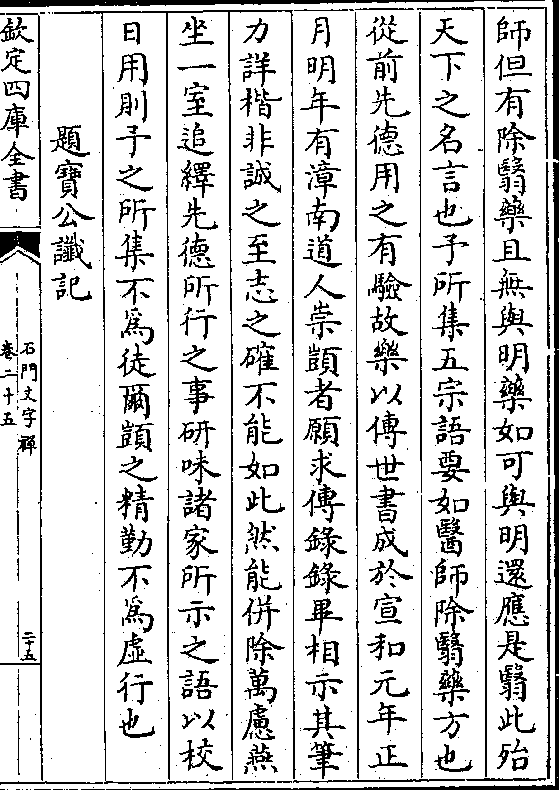 師但有除翳藥且無與明藥如可與明還應是翳此殆
天下之名言也予所集五宗語要如醫師除翳藥方也
從前先德用之有驗故藥以傳世書成於宣和元年正
月明年有漳南道人崇顗者願求傳錄錄畢相示其筆
力詳楷非誠之至志之確不能如此然能併除萬慮燕
坐一室追繹先德所行之事研味諸家所示之語以校
日用則予之所集不為徒爾顗之精勤不為虛行也
題寶公讖記
欽定四庫全書
石門文字禪
卷二十五
二十五